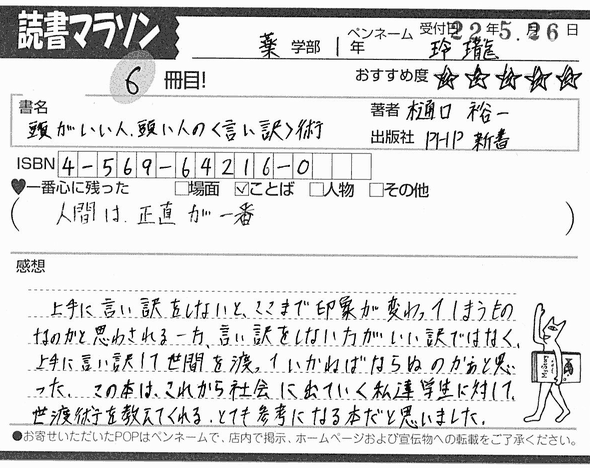 読書マラソン
薬 学部 1 年
ペンネーム 玲瓏
受付日 22年5月26日
6 冊目!
おすすめ度 ☆☆☆☆☆
書名
頭がいい人、頭い人の〈言い訳〉術
著者 樋口 裕一
出版社 PHP新書
ISBN 4-569-64216-0
♥一番心に残った □場面 ☑ことば □人物 □その他
( 人間は、正直が一番 )
感想
上手に言い訳をしないと、ここまで印象が変わってしまうもの
なのかと思わされる一方、言い訳をしない方がいい訳ではなく、
上手に言い訳して世間を渡っていかねばならぬのかぁと思
った。この本は、これから社会に出ていく私達学生に対して、
世渡術を教えてくれる、とても参考になる本だと思いました。
●お寄せいただいたPOPはペンネームで、店内で掲示、ホームページおよび宣伝物への転載をご了承ください。